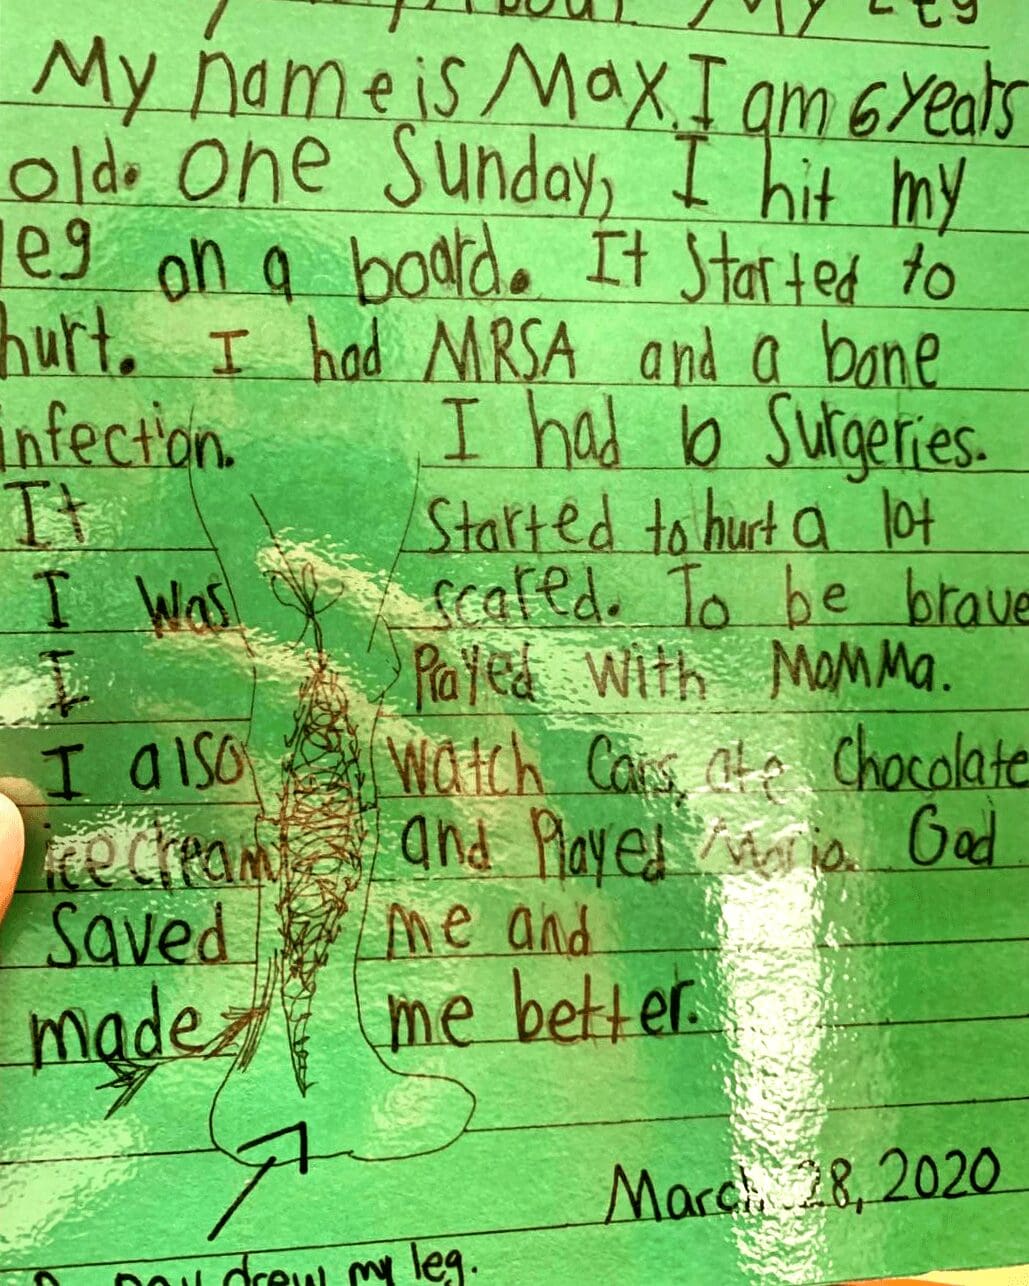 About My Leg
My name is Max. I am 6 years
old. One Sunday, I hit my
leg on a board. It started to
hurt. I had MRSA and a bone
infection. I had 6 Surgeries.
It started to hurt a lot
I was scared. To be brave
I Prayed with MoMMa.
I also watch Cars, ate Chocolate
ice cream and Played Mario. God
Saved me and
made me better.
March 28, 2020
drew my leg.